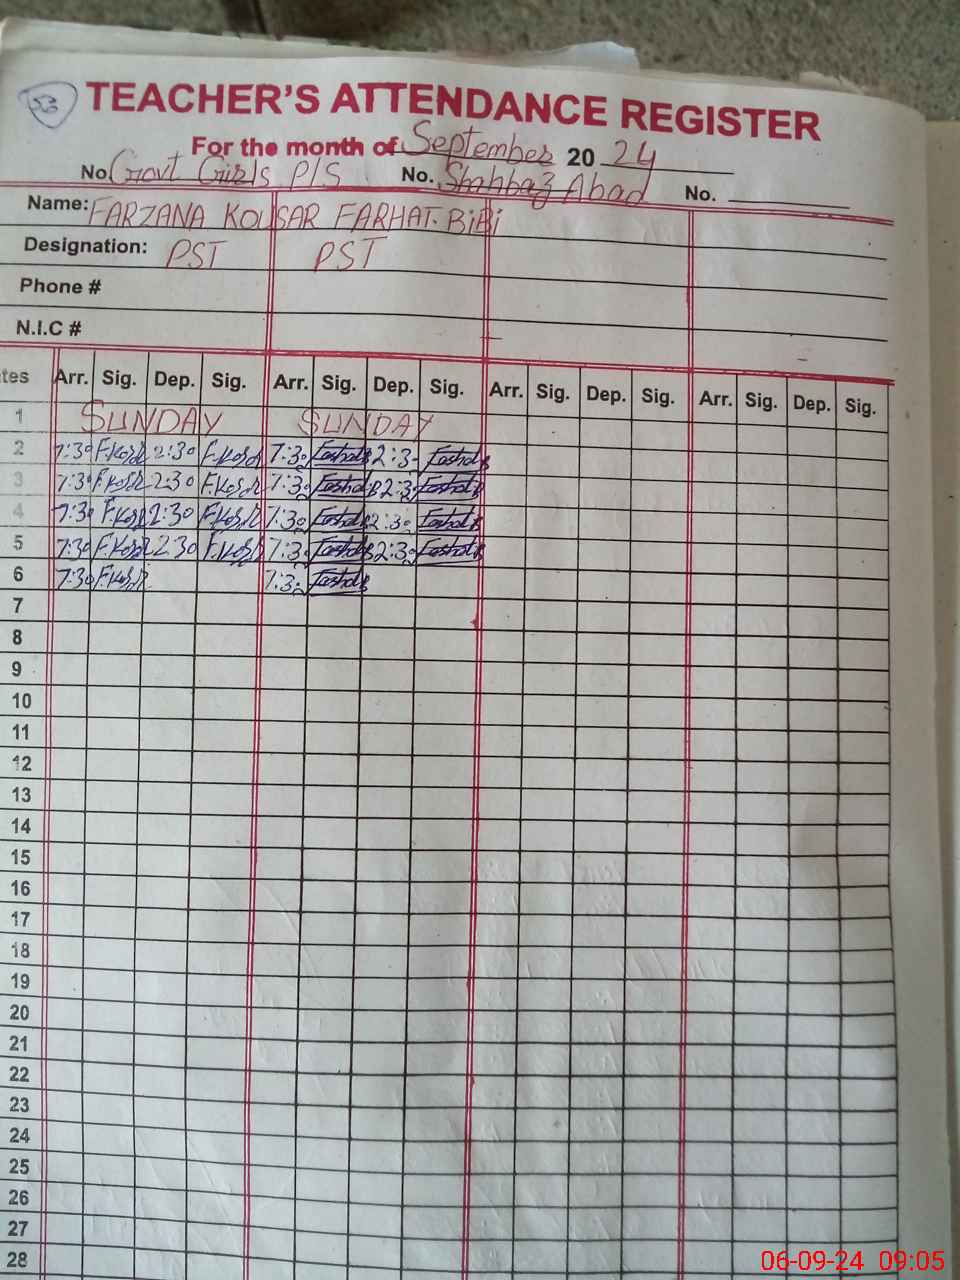 53
TEACHER'S ATTENDANCE REGISTER
For the month of September 20 24
No. Govt Girls P/S No. Shahbaz Abad No.
Name: FARZANA KOUSAR FARHAT BiBi
Designation: PST PST
Phone #
N.I.C #
tes Arr. Sig. Dep. Sig. Arr. Sig. Dep. Sig. Arr. Sig. Dep. Sig. Arr. Sig. Dep. Sig.
1 SUNDAY SUNDAY
2 7:30 2:30 7:30 2:30
3 7:30 2:30 7:30 2:30
4 7:30 2:30 7:30 2:30
5 7:30 2:30 7:30 2:30
6 7:30 7:30
7
8
9
10
11
12
13
14
15
16
17
18
19
20
21
22
23
24
25
26
27
28
06-09-24 09:05